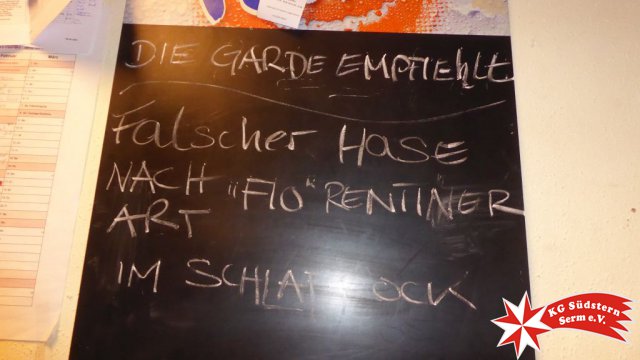 DIE GARDE EMPFIEhlt
Falscher HASE
NACH "FIO" RENTINER
ART
IM
KG Südstern
Serm e.V.